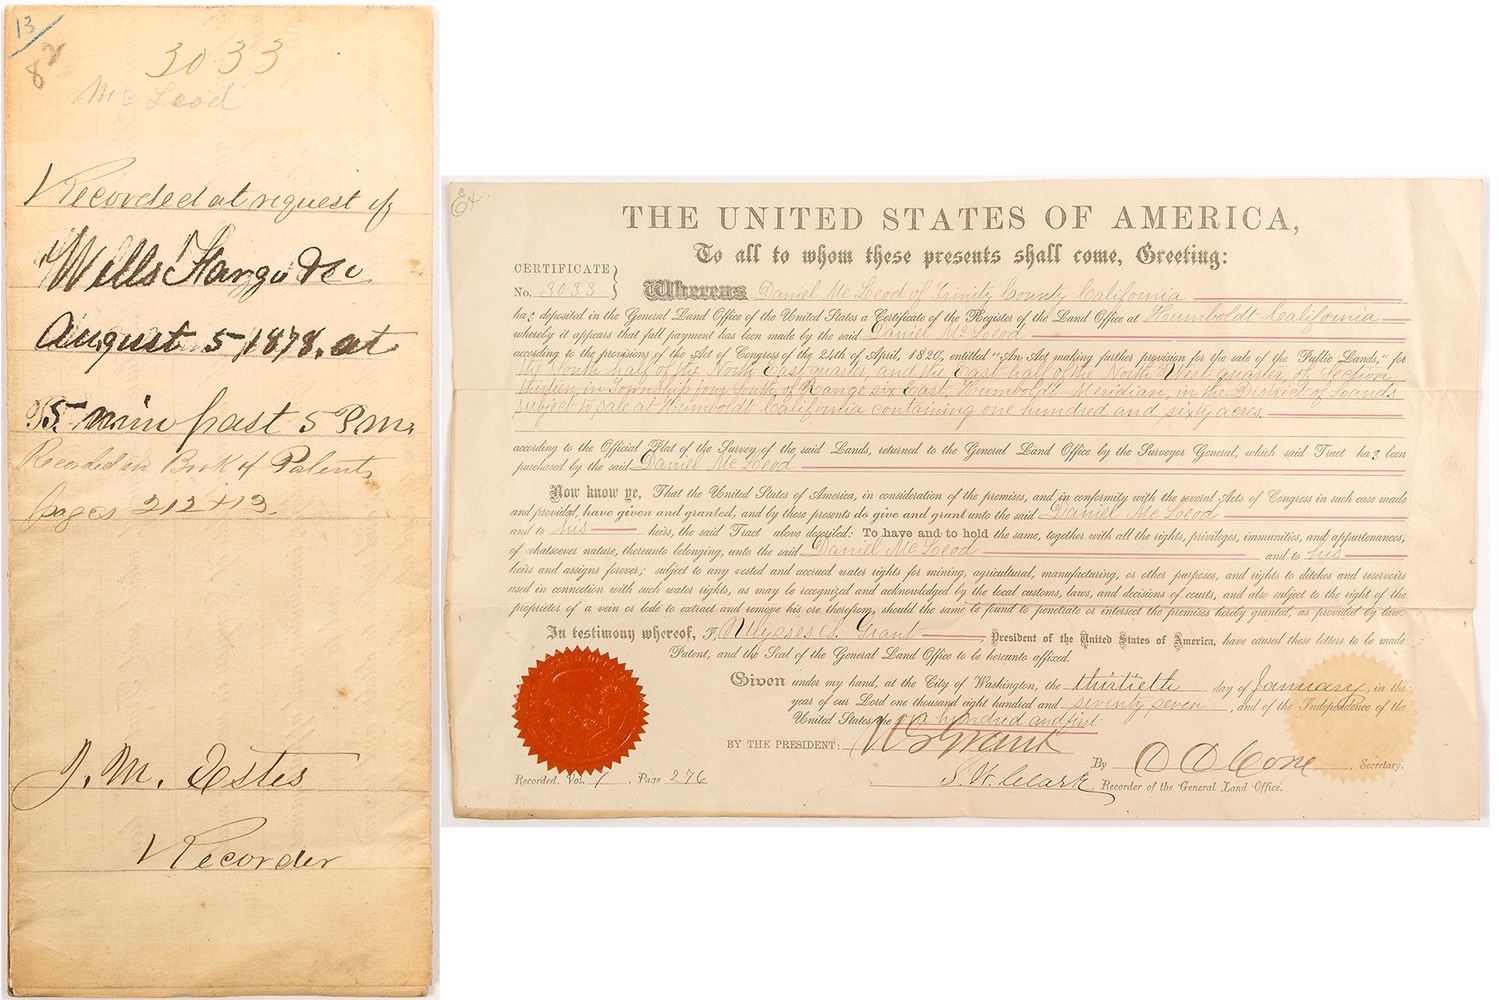 13
82
3033
McLeod
Recorded at request of
Wells Fargo & Co
August 5, 1878, at
5 min past 5 P.M.
Recorded in Book of Patents
pages 212 + 13.
J. M. Estes
Recorder
Ex
THE UNITED STATES OF AMERICA,
To all to whom these presents shall come, Greeting:
CERTIFICATE
No. 3033 } Whereas Daniel McLeod of Trinity County California
has deposited in the General Land Office of the United States a Certificate of the Register of the Land Office at Humboldt California
whereby it appears that full payment has been made by the said Daniel McLeod
according to the provisions of the Act of Congress of the 24th of April, 1820, entitled "An Act making further provision for the sale of the Public Lands," for
the South half of the North East quarter, and the East half of the North West quarter, of Section
thirteen, in Township four South, of Range six East, Humboldt Meridian, in the District of Lands
subject to sale at Humboldt, California containing one hundred and sixty acres
according to the Official Plat of the Survey of the said Lands, returned to the General Land Office by the Surveyor General, which said Tract has been
purchased by the said Daniel McLeod
Now know ye, That the United States of America, in consideration of the premises, and in conformity with the several Acts of Congress in such case made
and provided, have given and granted, and by these presents do give and grant unto the said Daniel McLeod
and to his heirs, the said Tract above described: To have and to hold the same, together with all the rights, privileges, immunities, and appurtenances,
of whatsoever nature, thereunto belonging, unto the said Daniel McLeod and to his
heirs and assigns forever; subject to any vested and accrued water rights for mining, agricultural, manufacturing, or other purposes, and rights to ditches and reservoirs
used in connection with such water rights, as may be recognized and acknowledged by the local customs, laws, and decisions of courts, and also subject to the right of the
proprietor of a vein or lode to extract and remove his ore therefrom, should the same be found to penetrate or intersect the premises hereby granted, as provided by law.
In testimony whereof, I, Ulysses S. Grant, President of the United States of America, have caused these letters to be made
Patent, and the Seal of the General Land Office to be hereunto affixed.
Given under my hand, at the City of Washington, the thirtieth day of January, in the
year of our Lord one thousand eight hundred and seventy seven, and of the Independence of the
United States the one hundred and first
BY THE PRESIDENT: U. S. Grant
By D D Cone, Secretary.
Recorded, Vol. 7, Page 276
S. W. Clark, Recorder of the General Land Office.